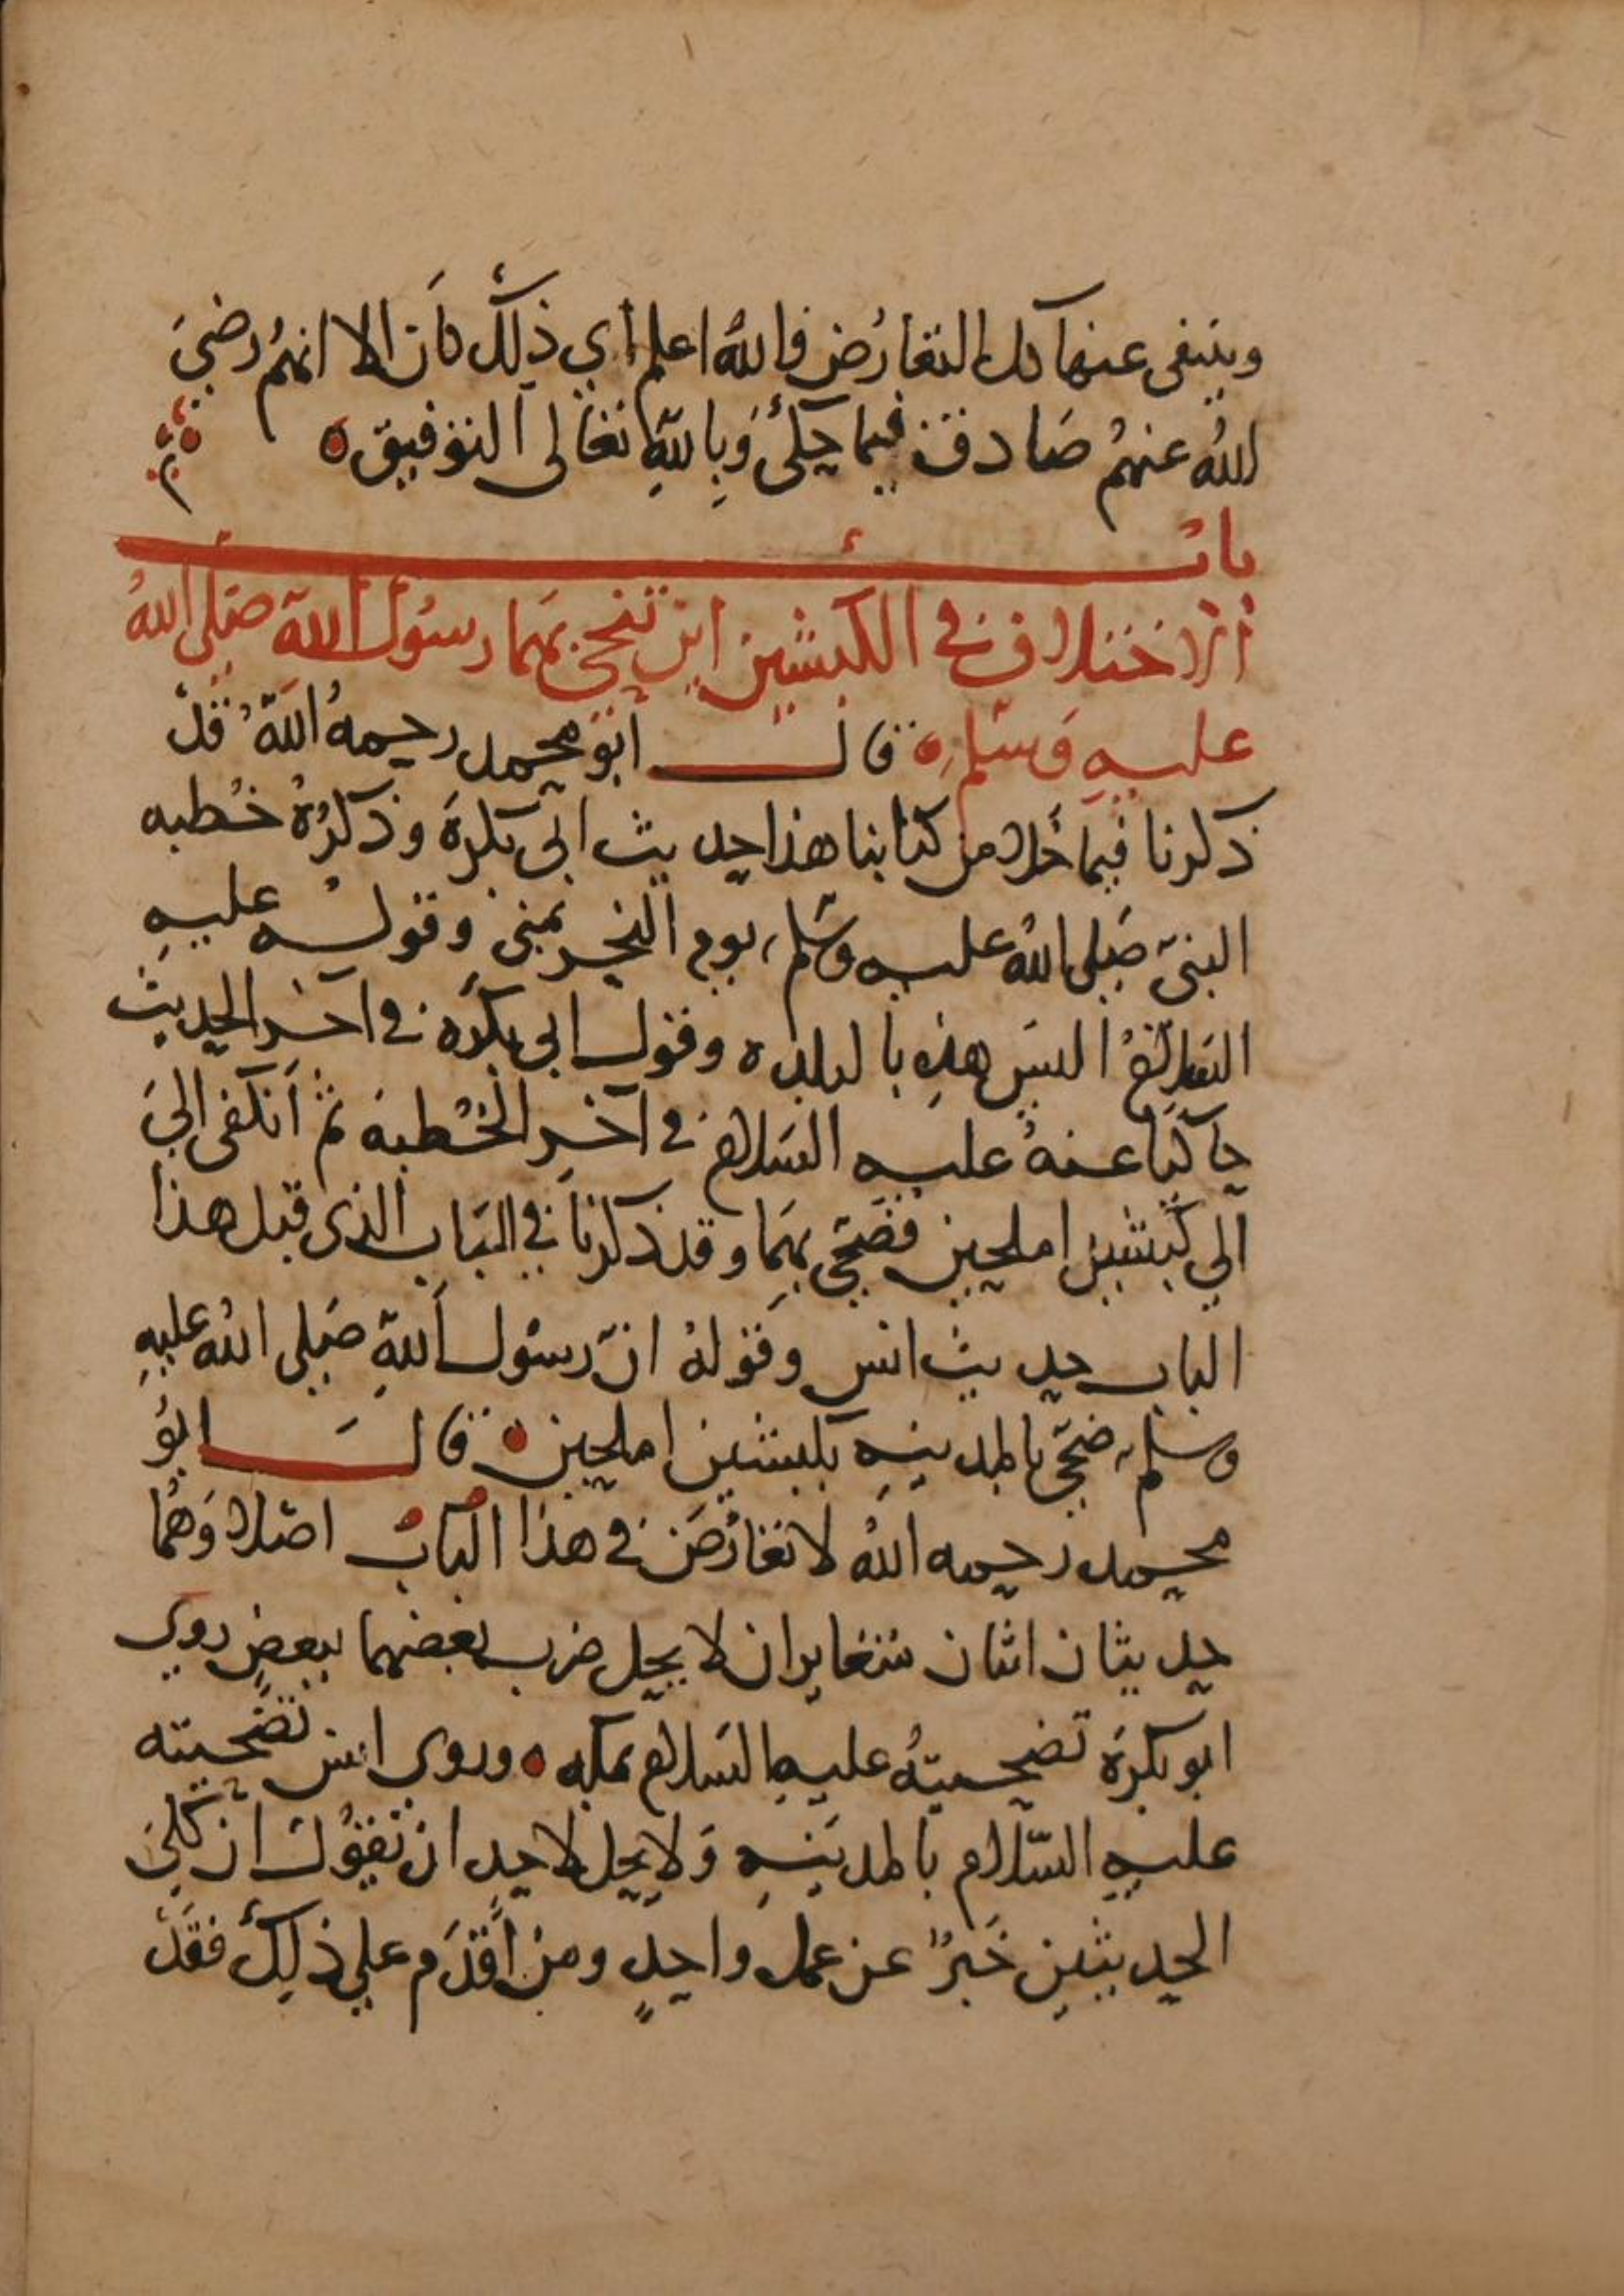 وينتفى عنها كل التعارُض فاللهُ اعلم أي ذلك كان الا انهمُ رضيَ
اللهُ عنهمُ صادق فيما حكى وَباللهِ تعالى التوفيق ه
باب
الاختلاف في الكبشين اين ضحى بهما رسُول الله صَلى اللهُ
عليهِ وَسَلم ه قال ابو محمد رحمهُ اللهُ قدْ
ذكرنا فيما خلا من كتابنا هذا حديث ابى بكرةَ وذكرُهُ خُطبه
النبىّ صَلى اللهُ عليه وسَلم يوم النحر بمنى وقوله عليهِ
السَلامُ اليسَ هذِه بالبلده وقول ابى بكرَه في آخر الحديث
حاكيًا عنهُ عليه السَلام في آخِر الخُطبه ثم انكفى اليَ
الي كبشين املحين فضحّى بهمَا وقد ذكرنا في البَاب الذى قبل هذا
الباب حديث انس وقولهُ انّ رسُول اللهِ صَلى اللهُ عليهِ
وسلم ضحّى بالمدينهِ بكبشين املحين ه قال ابوُ
محمد رحمه اللهُ لا تعارُضَ في هذا البابُ اصْلا وَهُما
حديثان اثنان متغايران لا يحل ضرب بعضهما ببعضٍ روى
ابو بكرَة تضحيتهُ عليهِ السَلام بمكه ه وروى انس تضَحيته
عليهِ السّلام بالمدينهِ وَلا يحل لاحدٍ ان يقوُل ان كلىَ
الحديثين خَبرٌ عن عمل واحدٍ ومن أقدَم علي ذلِك فقدْ